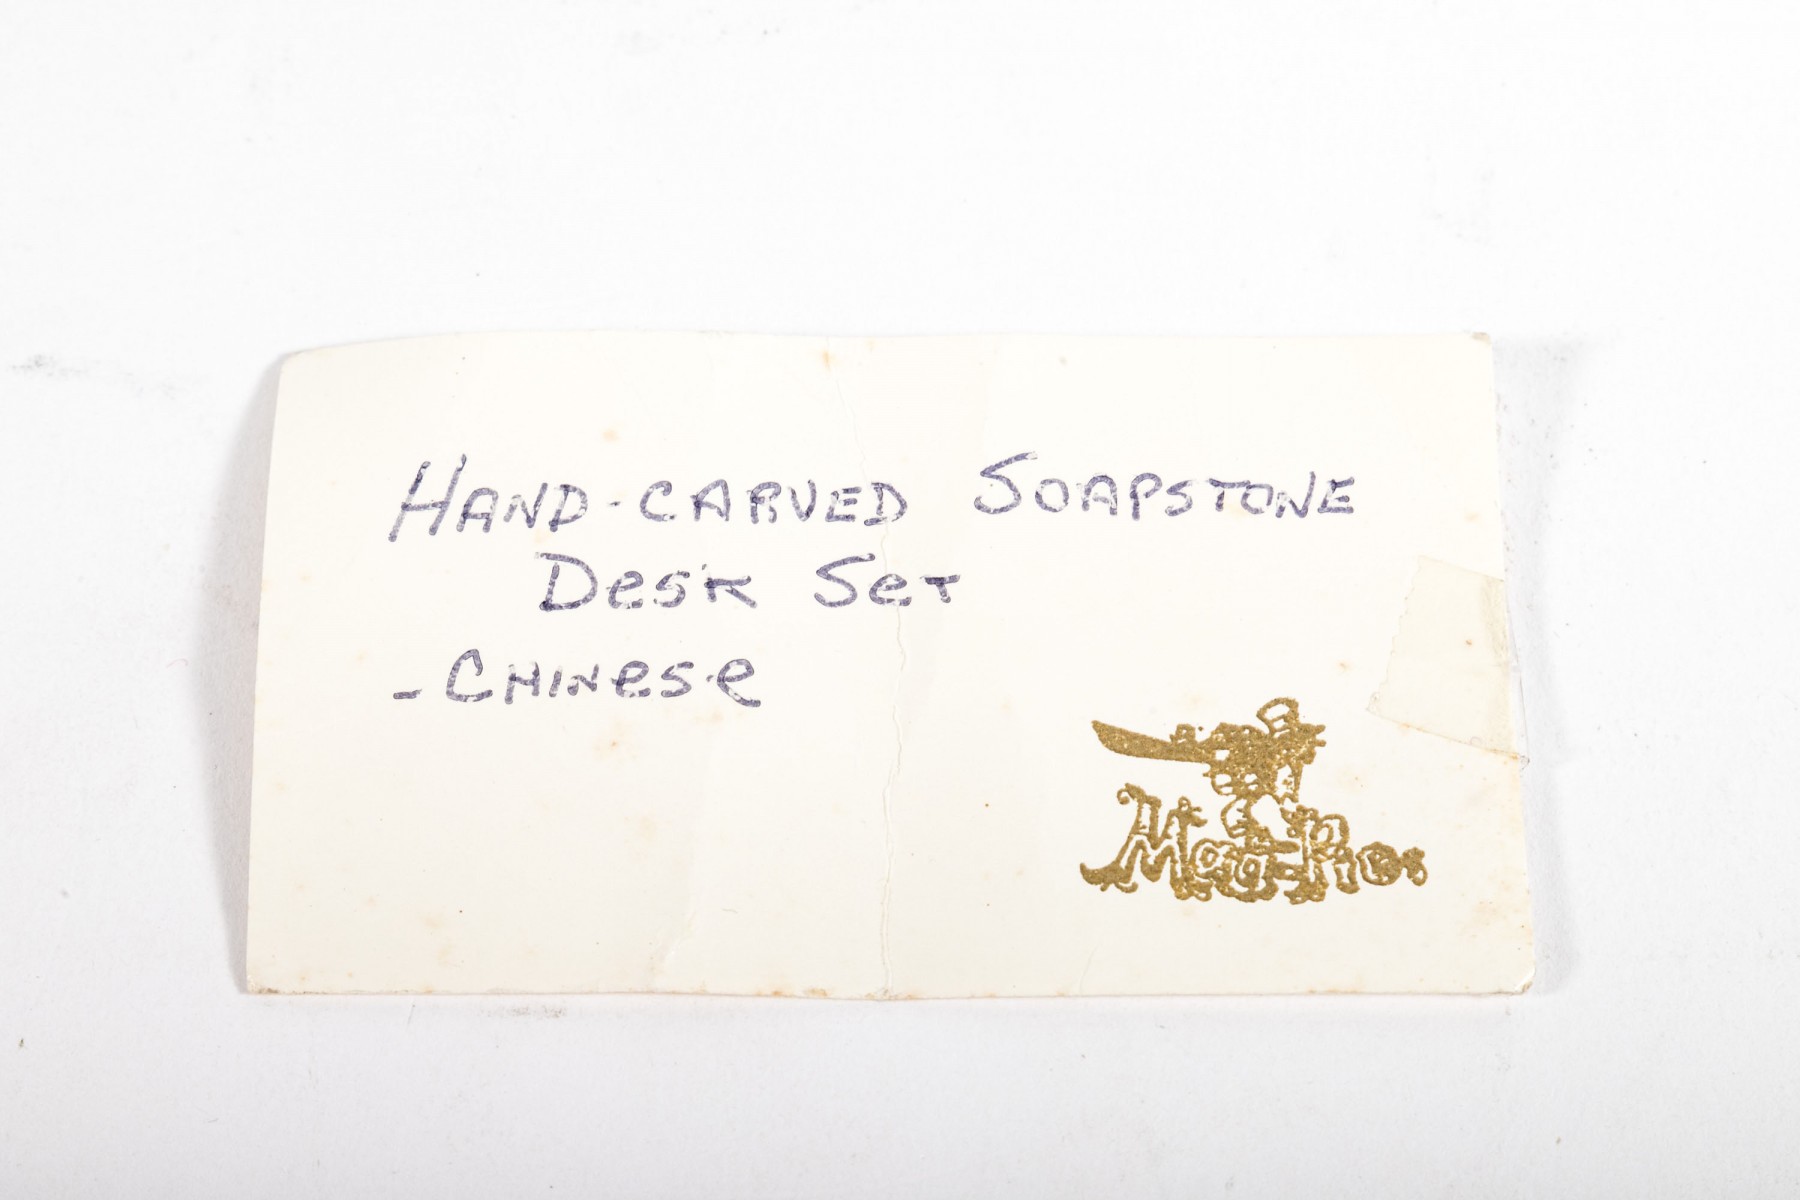 HAND-CARVED SOAPSTONE
DeSK SeT
- CHINeSe
Mag-Pies